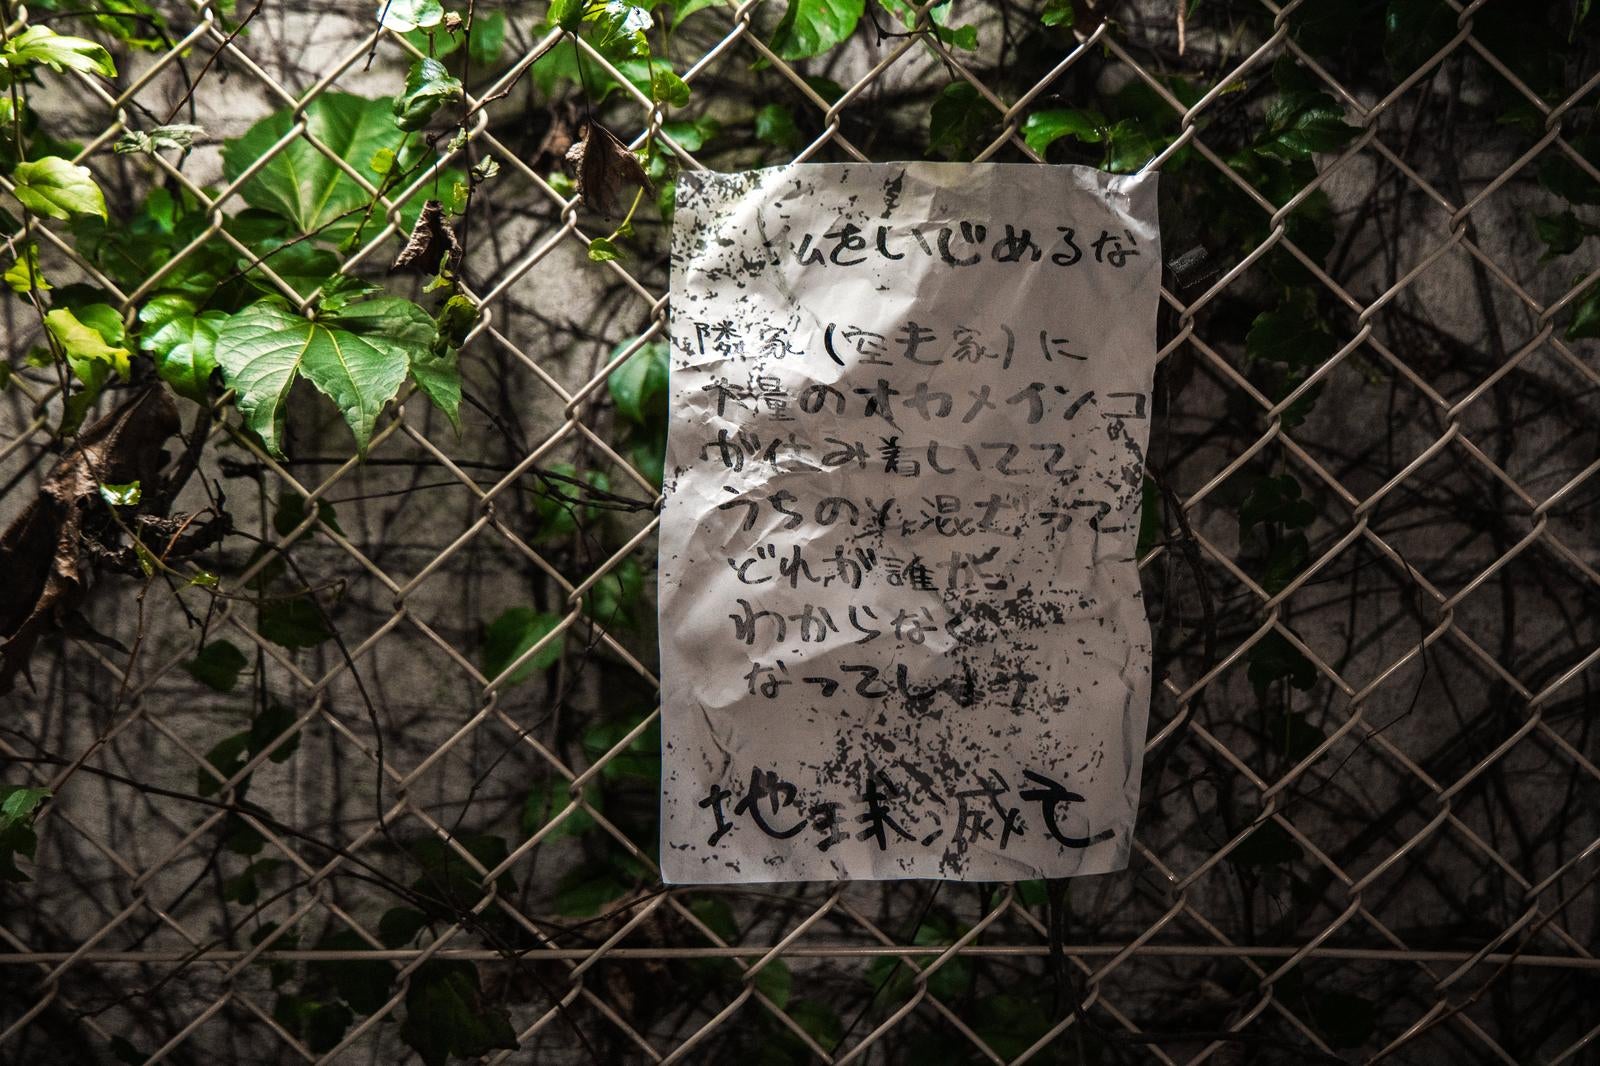 ムをいじめるな
隣家(空き家)に
大量のオカメインコ
が住み着いてて
うちのと混ざって
どれが誰か
わからなく
なってしま
地球滅亡